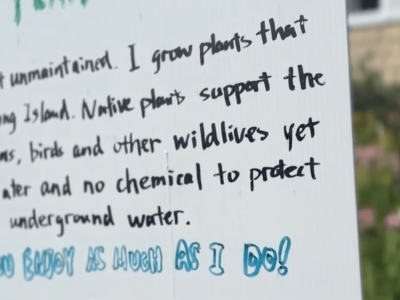 unmaintained. I grow plants that
Island. Native plants support the
birds and other wildlives yet
and no chemical to protect
underground water.
ENJOY AS MUCH AS I DO!